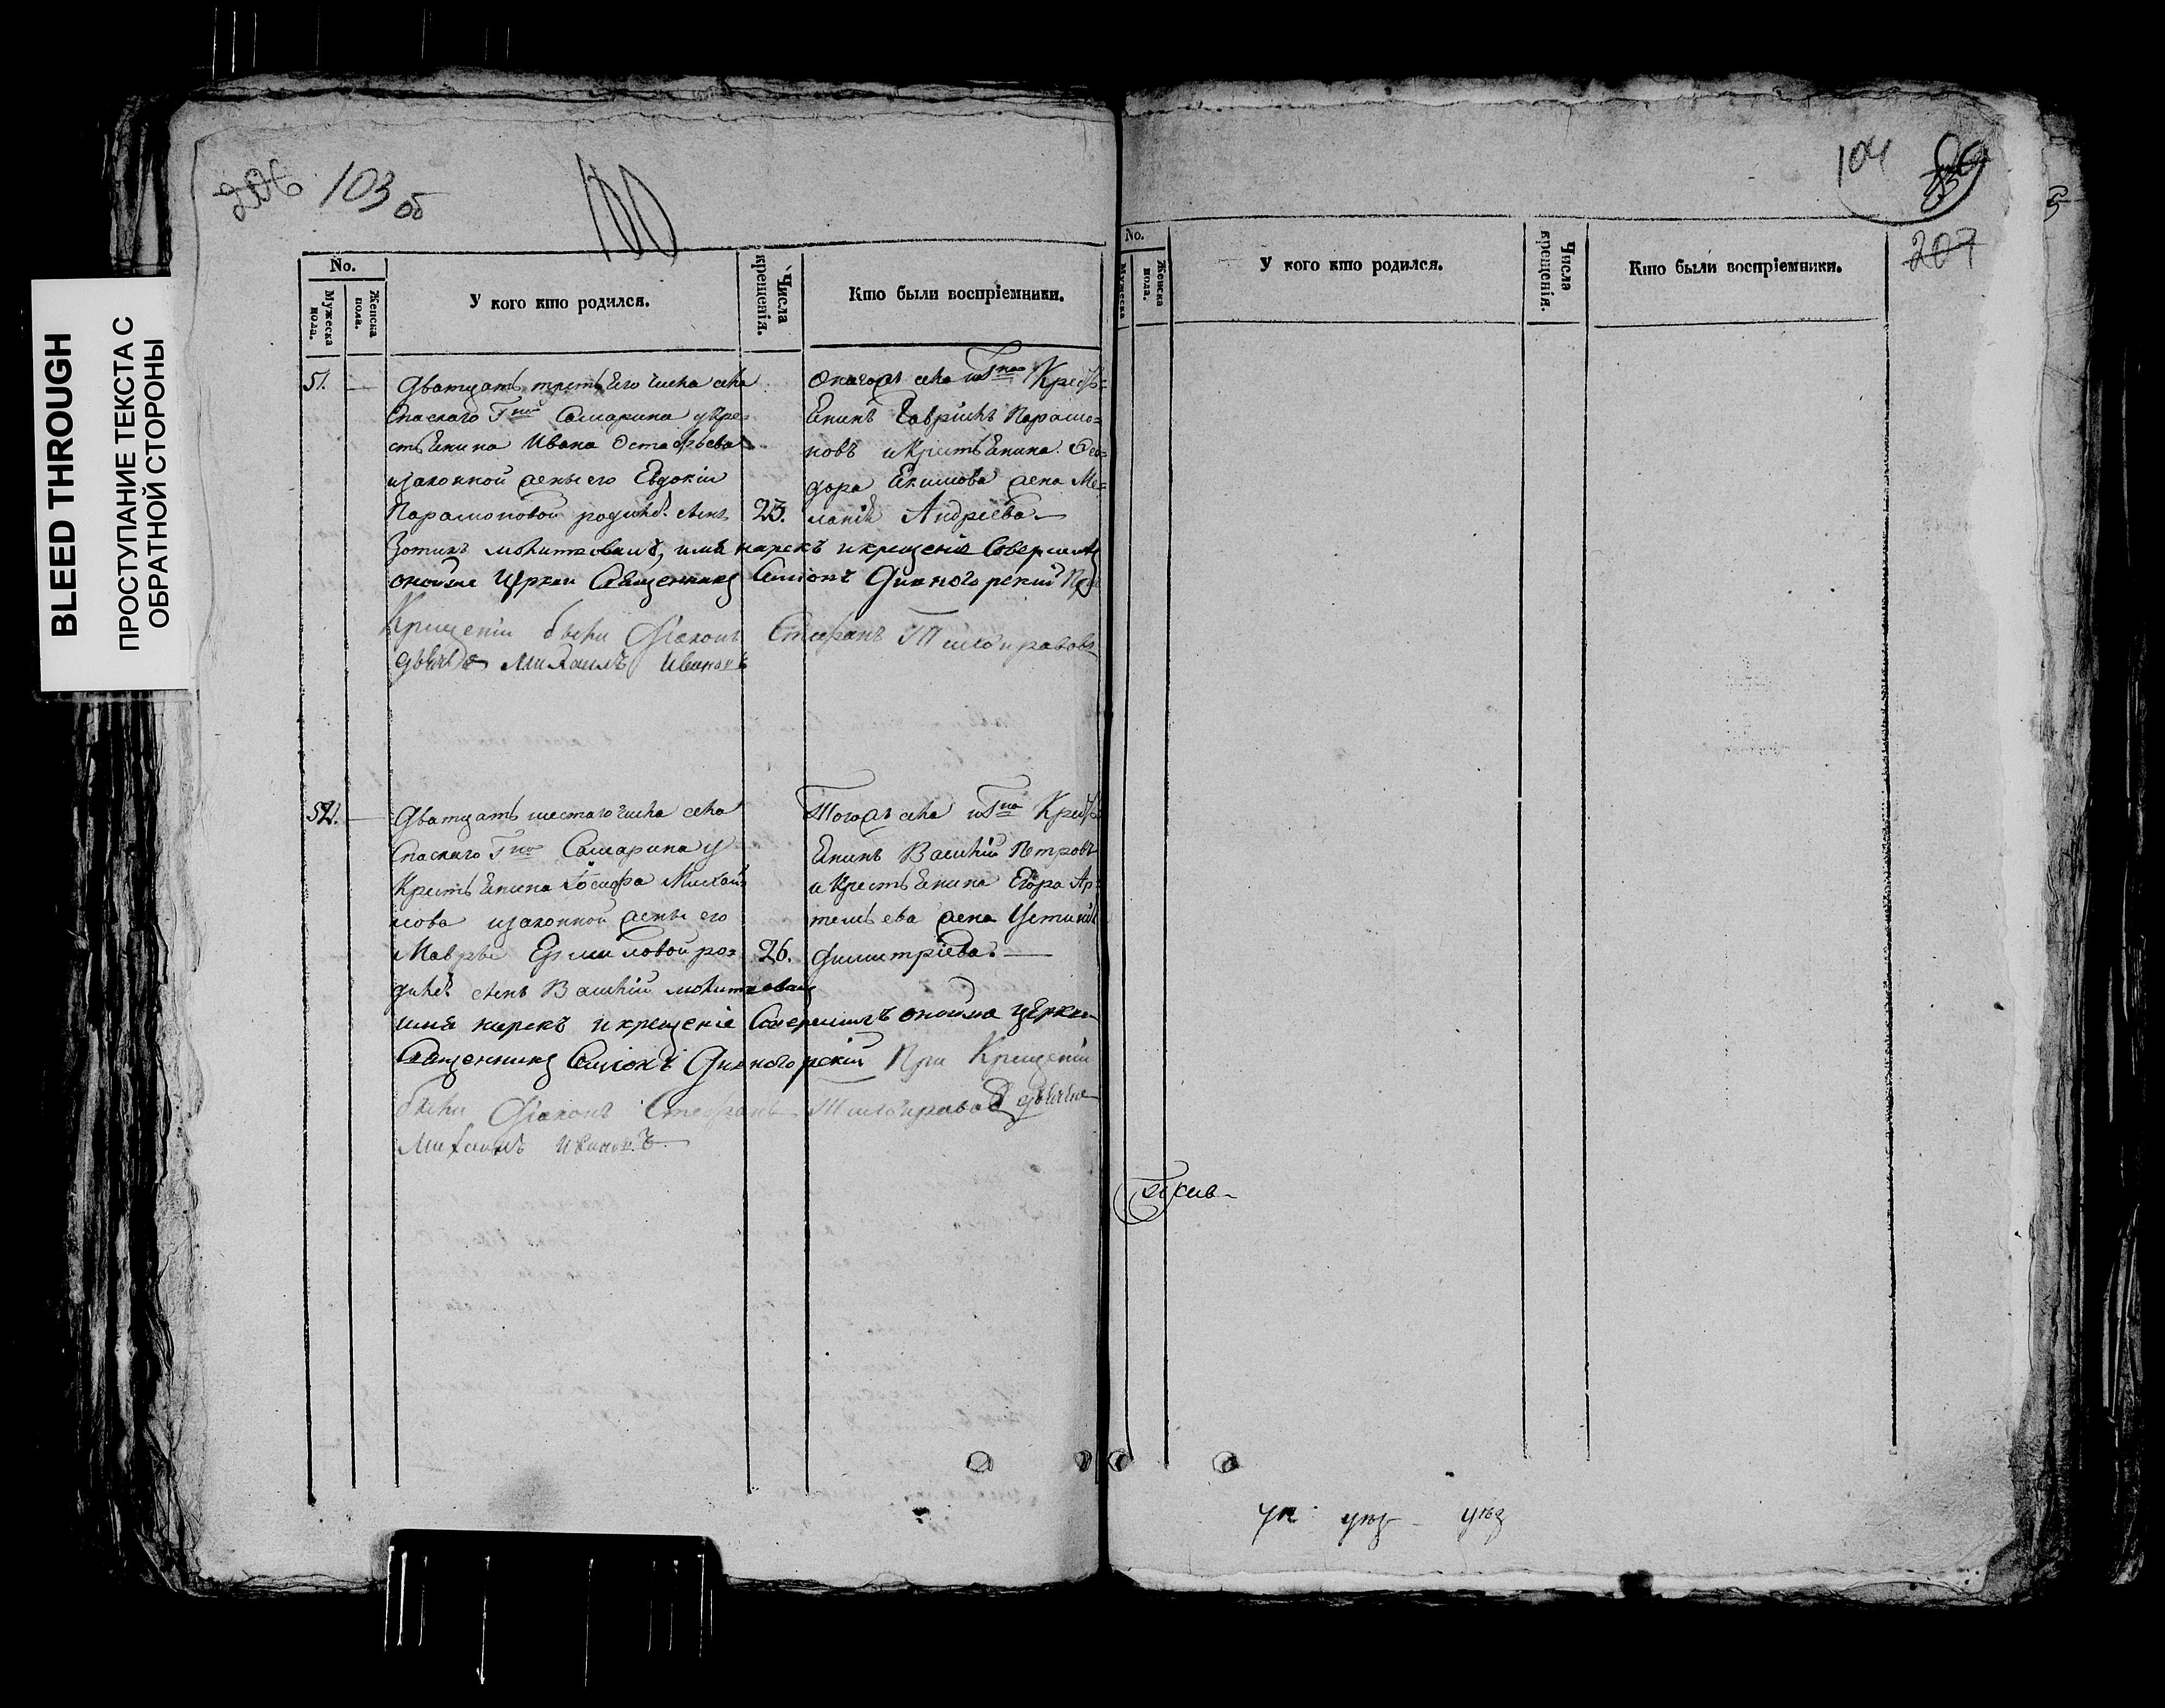 BLEED THROUGH
ПРОСТУПАНИЕ ТЕКСТА С
ОБРАТНОЙ СТОРОНЫ
206 103 об
No.
Мужеска пола.
Женска пола.
У кого кто родился.
Числа крещенія.
Кто были воспріемники.
51.
Дватцать третьего числа села
Спаскаго Гна Самарина у кре-
стьенина Ивана Остафьева
изаконной жены его Евдокіи
Парамоновой родился сынъ
Зотикъ молитвовалъ, имя нарекъ и крещеніе Совершилъ
оной же Церкви Священникъ Симіонъ Дивногорскій При
Крещеніи были Діаконъ Стефанъ
дьячекъ Михаилъ Ивановъ
23.
Оногожъ села и Гна Кресть-
енинъ Гаврилъ Парамо-
новъ и крестьенина Фео-
дора Екимова жена Ме-
ланія Андреева
52.
Дватцать шестаго числа села
Спаскаго Гна Самарина у
Крестьенина Іосифа Михай-
лова изаконной жены его
Мавры Ермиловой ро-
дился сынъ Василій молитвовалъ
имя нарекъ и крещеніе Совершилъ оной же церкви
Священникъ Симіонъ Дивногорскій При Крещеніи
были Діаконъ Стефанъ дьячекъ
Михаилъ Ивановъ
26.
Тогожъ села и Гна Кресть-
енинъ Василій Петровъ
и Крестьенина Егора Ар-
темьева жена Устинія
Димитріева.
104
207
No.
Мужеска
Женска пола.
У кого кто родился.
Числа крещенія.
Кто были воспріемники.